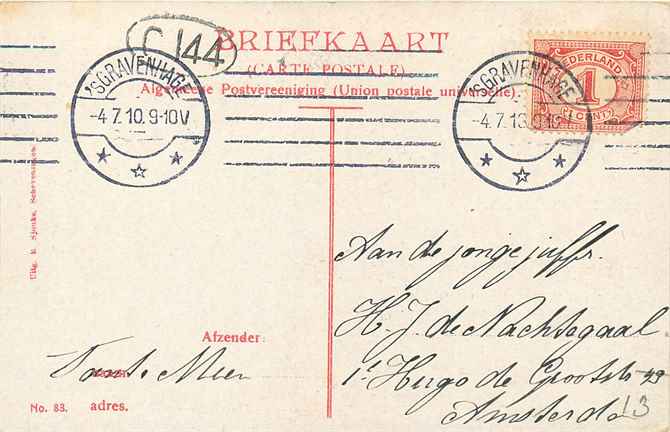 C 144
BRIEFKAART
(CARTE POSTALE)
Algemeene Postvereeniging (Union postale universelle)
'SGRAVENHAGE
-4.7.10.9-10V
'SGRAVENHAGE
-4.7.10.9-10
NEDERLAND
1
(1 CENT)
Uitg. E. Sjouke, Scheveningen.
Aan de jonge juffr.
H. J. de Nachtegaal
1e Hugo de Grootstr 49
Amsterda
13
Afzender:
Tante Mien
No. 83.
adres.